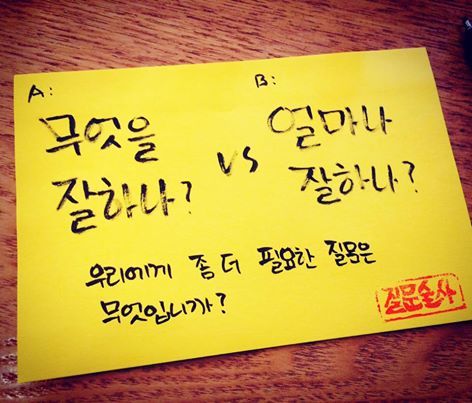 A:
무엇을
잘하나?
vs
B:
얼마나
잘하나?
우리에게 좀 더 필요한 질문은
무엇입니까?
질문술사